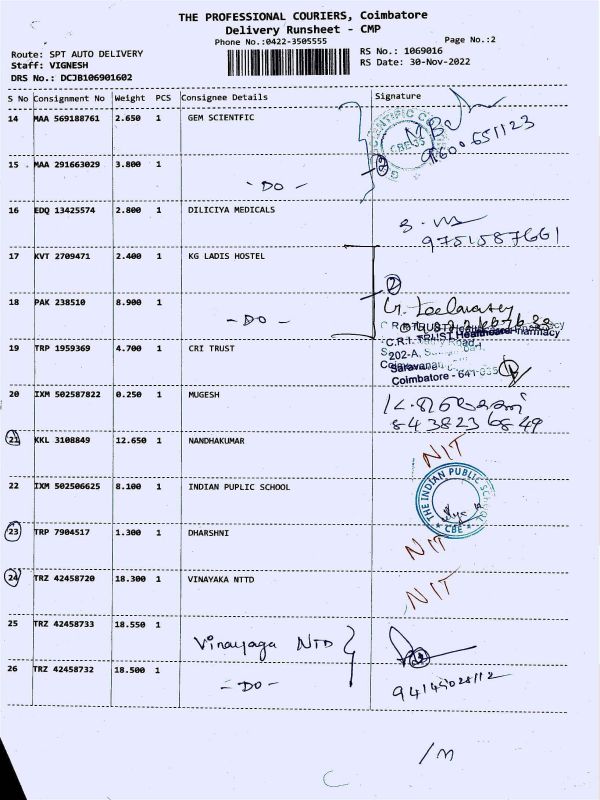 THE PROFESSIONAL COURIERS, Coimbatore
Delivery Runsheet - CMP
Phone No.:0422-3505555
Page No.:2
Route: SPT AUTO DELIVERY
RS No.: 1069016
Staff: VIGNESH
RS Date: 30-Nov-2022
DRS No.: DCJB106901602
S No Consignment No Weight PCS Consignee Details Signature
14 MAA 569188761 2.650 1 GEM SCIENTFIC
CBE-35
9600651123
15 MAA 291663029 3.800 1
- DO -
2
16 EDQ 13425574 2.800 1 DILICIYA MEDICALS
9751587661
17 KVT 2709471 2.400 1 KG LADIS HOSTEL
2
18 PAK 238510 8.900 1
- DO -
19 TRP 1959369 4.700 1 CRI TRUST
C.R.I. TRUST Healthcare Pharmacy
202-A,
Coimbatore - 641 035
20 IXM 502587822 0.250 1 MUGESH
8438236849
21 KKL 3108849 12.650 1 NANDHAKUMAR
NIT
22 IXM 502506625 8.100 1 INDIAN PUPLIC SCHOOL
THE INDIAN PUBLIC SCHOOL
CBE
23 TRP 7904517 1.300 1 DHARSHNI
NIT
24 TRZ 42458720 18.300 1 VINAYAKA NTTD
NIT
25 TRZ 42458733 18.550 1
Vinayaga NTD
26 TRZ 42458732 18.500 1
- DO -
/m